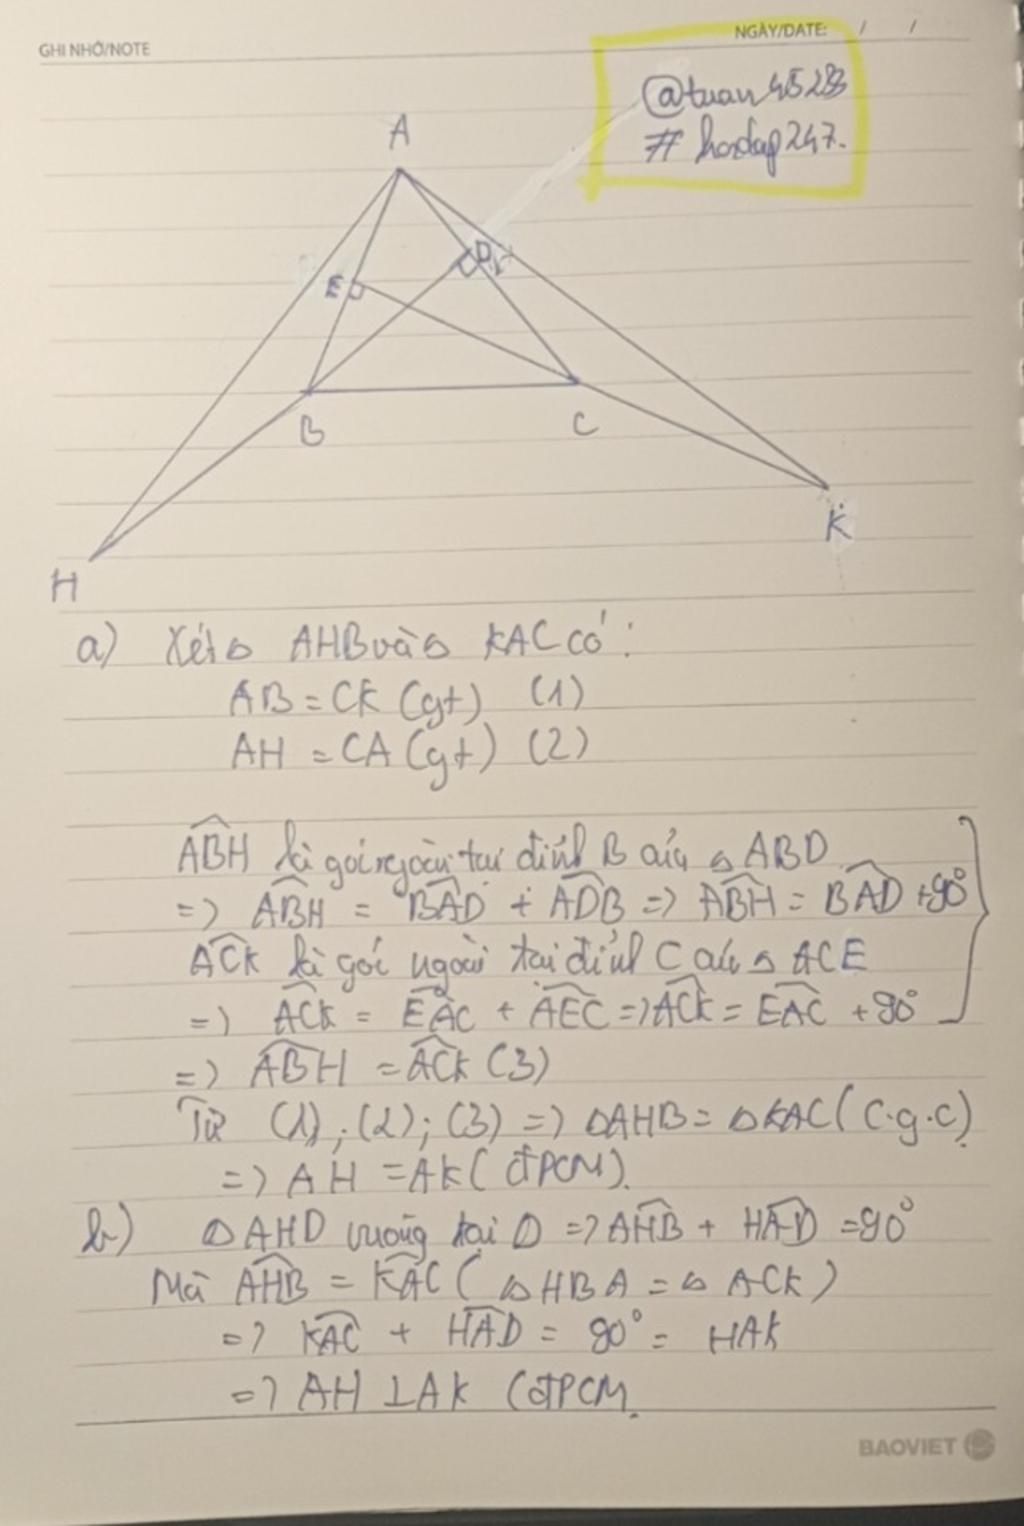 GHI NHỚ/NOTE
NGÀY/DATE: / /
@tuan4528
# hoidap247.
A
E
D
B
C
H
K
a) Xét △ AHB và △ KAC có:
AB = CK (gt) (1)
AH = CA (gt) (2)
ABH là góc ngoài tại đỉnh B của △ ABD
=> ABH = BAD + ADB => ABH = BAD + 90°
ACK là góc ngoài tại đỉnh C của △ ACE
=> ACK = EAC + AEC => ACK = EAC + 90°
=> ABH = ACK (3)
Từ (1); (2); (3) => △AHB = △KAC (c.g.c)
=> AH = AK (ĐPCM).
b) △AHD vuông tại D => AHB + HAD = 90°
Mà AHB = KAC (△HBA = △ ACK)
=> KAC + HAD = 90° = HAK
=> AH ⊥ AK (ĐPCM.
BAOVIET